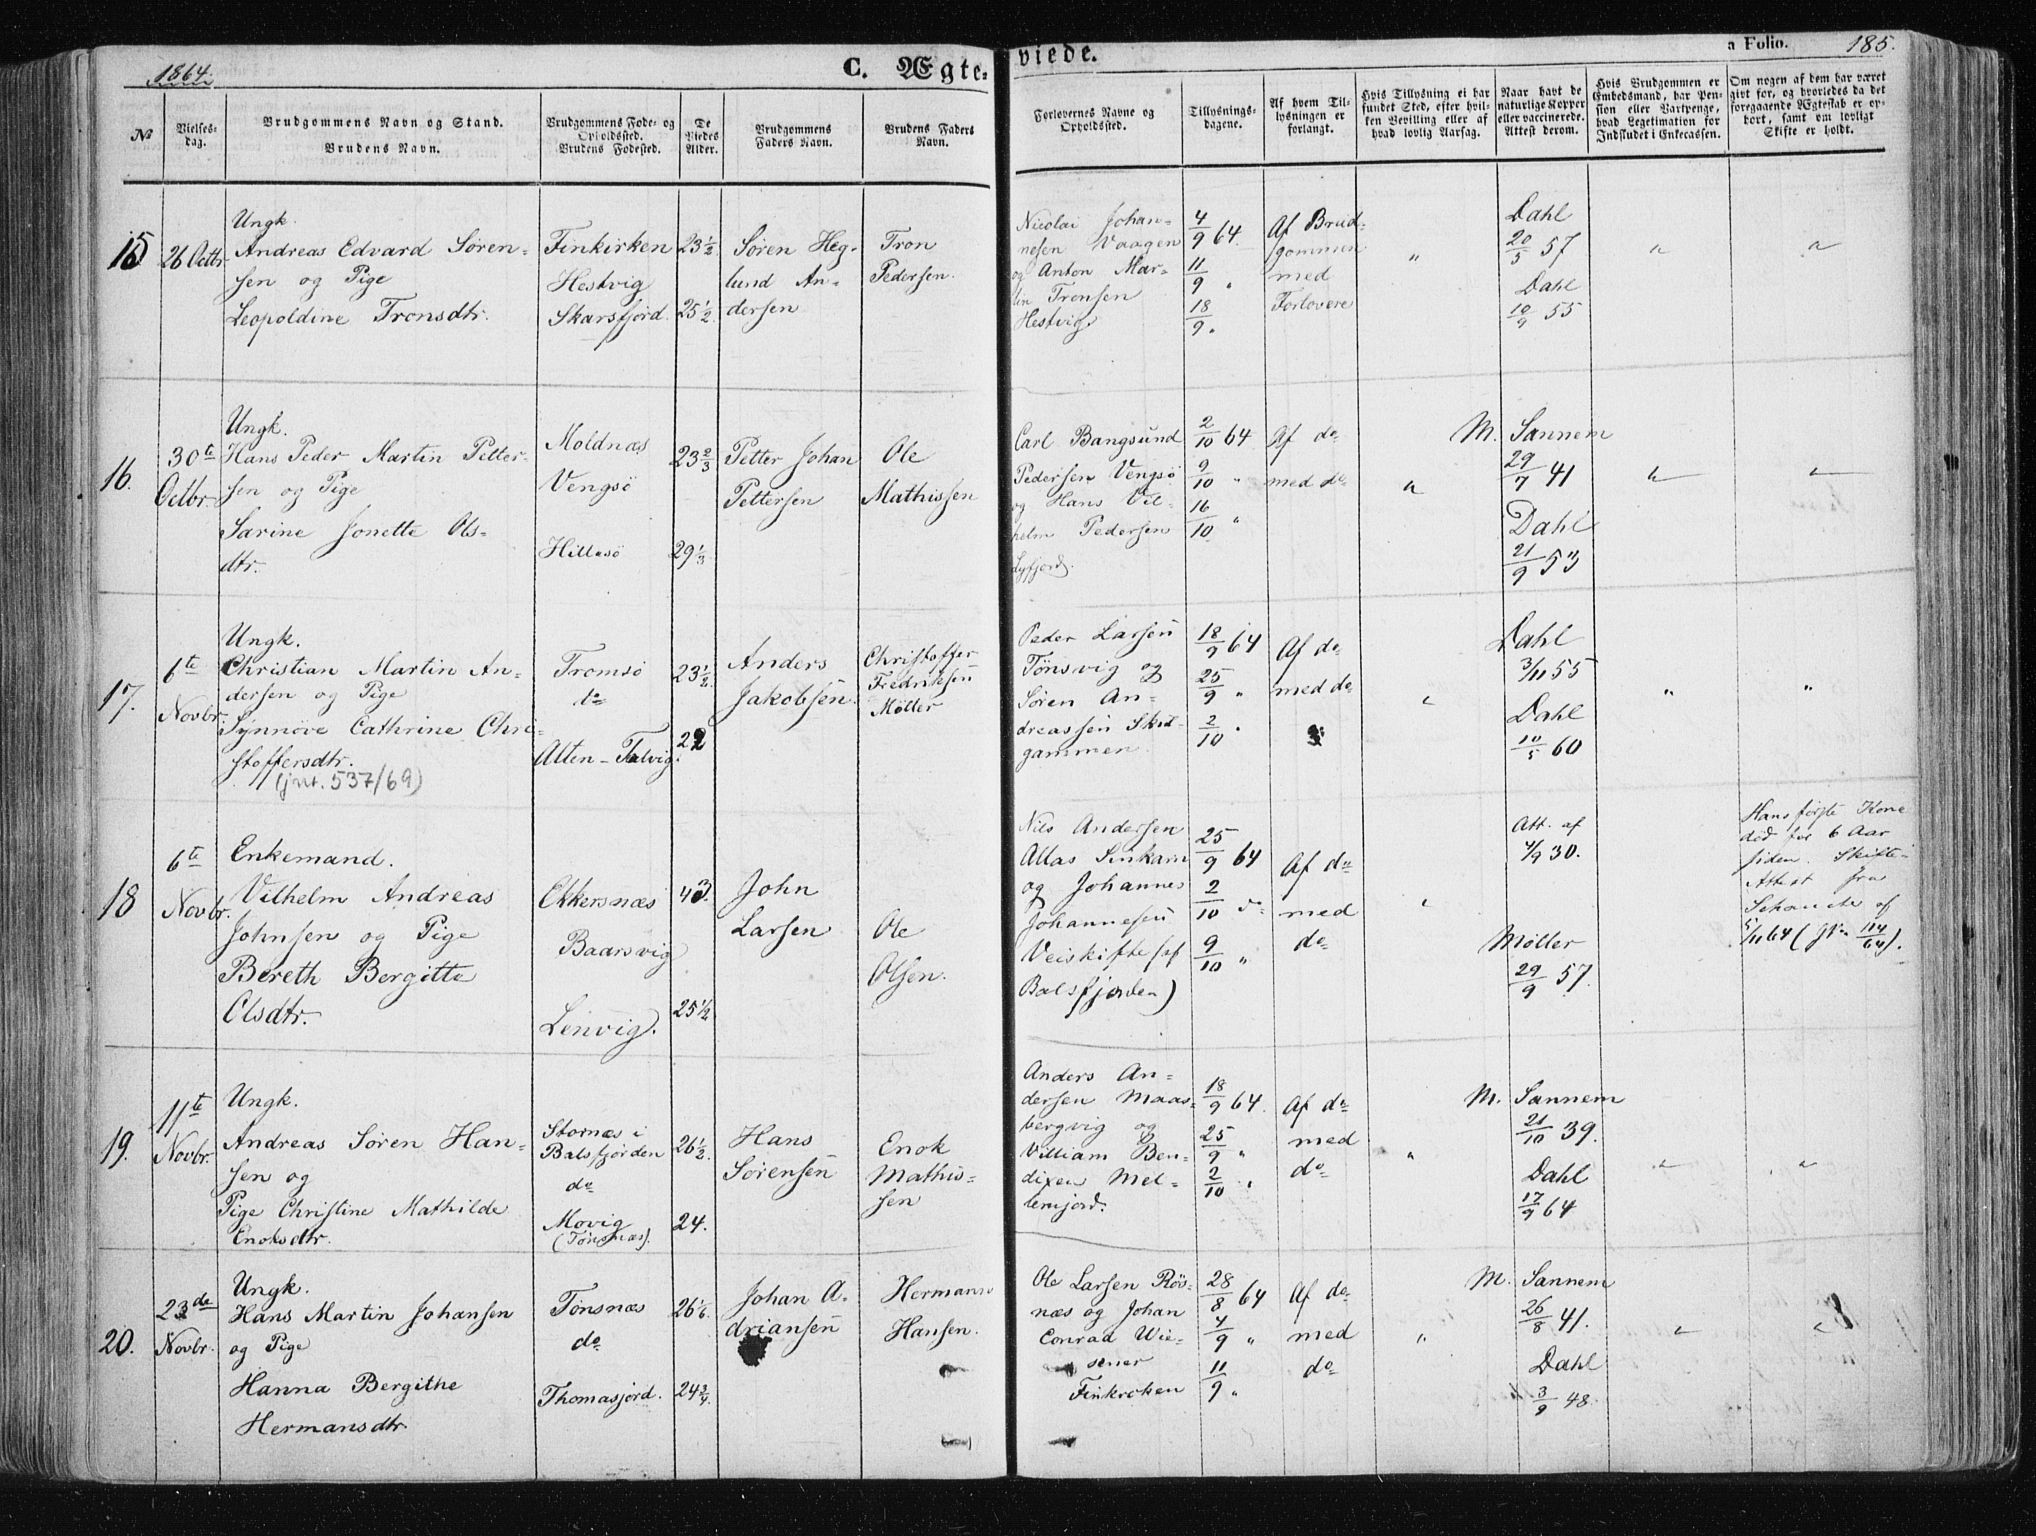 1864.
C. Ægte-
viede.
a Folio. 185.
No
Vielses-
dag.
Brudgommens Navn og Stand.
Brudens Navn.
Brudgommens Føde- og
Opholdssted.
Brudens Fødested.
De
Viedes
Alder.
Brudgommens
Faders Navn.
Brudens Faders
Navn.
Forlovernes Navne og
Opholdssted.
Tillysnings-
dagene.
Af hvem Til-
lysningen er
forlangt.
Hvis Tillysning ei har
fundet Sted, efter hvil-
ken Bevilling eller af
hvad lovlig Aarsag.
Naar havt de
naturlige Kopper
eller vaccinerede.
Attest derom.
Hvis Brudgommen er
Embedsmand, har Pen-
sion eller Vartpenge,
hvad Legitimation for
Indskudet i Enkecassen.
Om nogen af dem har været
gift før, og hvorledes da det
foregaaende Ægteskab er op-
hørt, samt om lovligt
Skifte er holdt.
15
26 Octbr.
Ungk.
Andreas Edvard Søren-
sen og Pige
Leopoldine Tronsdtr.
Finkirken
Hestvig
Skarsfjord
23 1/2
25 1/2
Søren Heg-
lund An-
dersen
Tron
Pedersen.
Nicolai Johan-
nesen Vaagen
og Anton Mar-
tin Tronsen
Hestvig.
4/9 64.
11/9 "
18/9 "
Af Brud-
gommen
med
Forlovere
"
Dahl
20/5 57
Dahl
10/9 55
"
"
16.
30te
Octbr.
Ungk.
Hans Peder Martin Petter-
sen og Pige
Sarine Jonette Ols-
dtr.
Moldnæs
Vengsö
Hillesö
23 2/3
29 1/3
Petter Johan
Pettersen
Ole
Mathissen
Carl Bangsund
Pedersen Vengsö
og Hans Vil-
helm Pedersen
Lyfjord.
2/10 64
9/10 "
16/10 "
Af do
med do
"
M. Sannem
29/7 41
Dahl
21/9 53
"
"
17.
6te
Novbr.
Ungk.
Christian Martin An-
dersen og Pige
Synnöve Cathrine Chri-
stoffersdtr.
(jnr. 537/69)
Tromsö
do
Alten - Talvig.
23 1/2
22
Anders
Jakobsen.
Christoffer
Fredriksen
Møller
Peder Larsen
Tönsvig og
Sören An-
dreassen Skul-
gammen
18/9 64
25/9 "
2/10 "
Af do
med do
"
Dahl
3/11 55
Dahl
10/5 60
"
"
18
6te
Novbr.
Enkemand.
Vilhelm Andreas
Johnsen og Pige
Bereth Bergitte
Olsdtr.
Ekkersnæs
Baarsvig
Lenvig.
43.
25 1/4
John
Larsen
Ole
Olsen.
Nils Andersen
Allas
og Johannes
Johannesen
Balsfjorden)
25/9 64
2/10 do
9/10 "
Af do
med
do
"
Att. af
4/9 30.
Møller
29/9 57.
Hans første Kone
død for 6 Aar
siden. Skifte-
Attest fra
af
5/11 64 (Jr. 114/64).
19.
11te
Novbr.
Ungk.
Andreas Sören Han-
sen og
Pige Christine Mathilde
Enoksdtr.
Stornæs i
Balsfjorden
do
Movig
(Tönsnæs).
26 1/2
24.
Hans
Sørensen
Enok
Mathis-
sen
Anders An-
dersen Maas-
bergvig og
Villiam Ben-
dixen Mel-
lemjord.
18/9 64.
25/9 "
2/10 "
Af do
med
do
"
M. Sannem
21/10 39.
Dahl
17/9 64
"
"
20.
23de
Novbr.
Ungk.
Hans Martin Johansen
og Pige
Hanna Bergithe
Hermansdtr.
Tönsnæs
do
Thomasjord.
26 1/6
24 3/4
Johan A-
driansen
Herman
Hansen.
Ole Larsen Rös-
næs og Johan
Conrad Wie-
sener
Finkroken
28/8 64
4/9 "
11/9 "
Af do
med
do
"
M. Sannem
26/8 41.
Dahl
3/9 48.
"
"